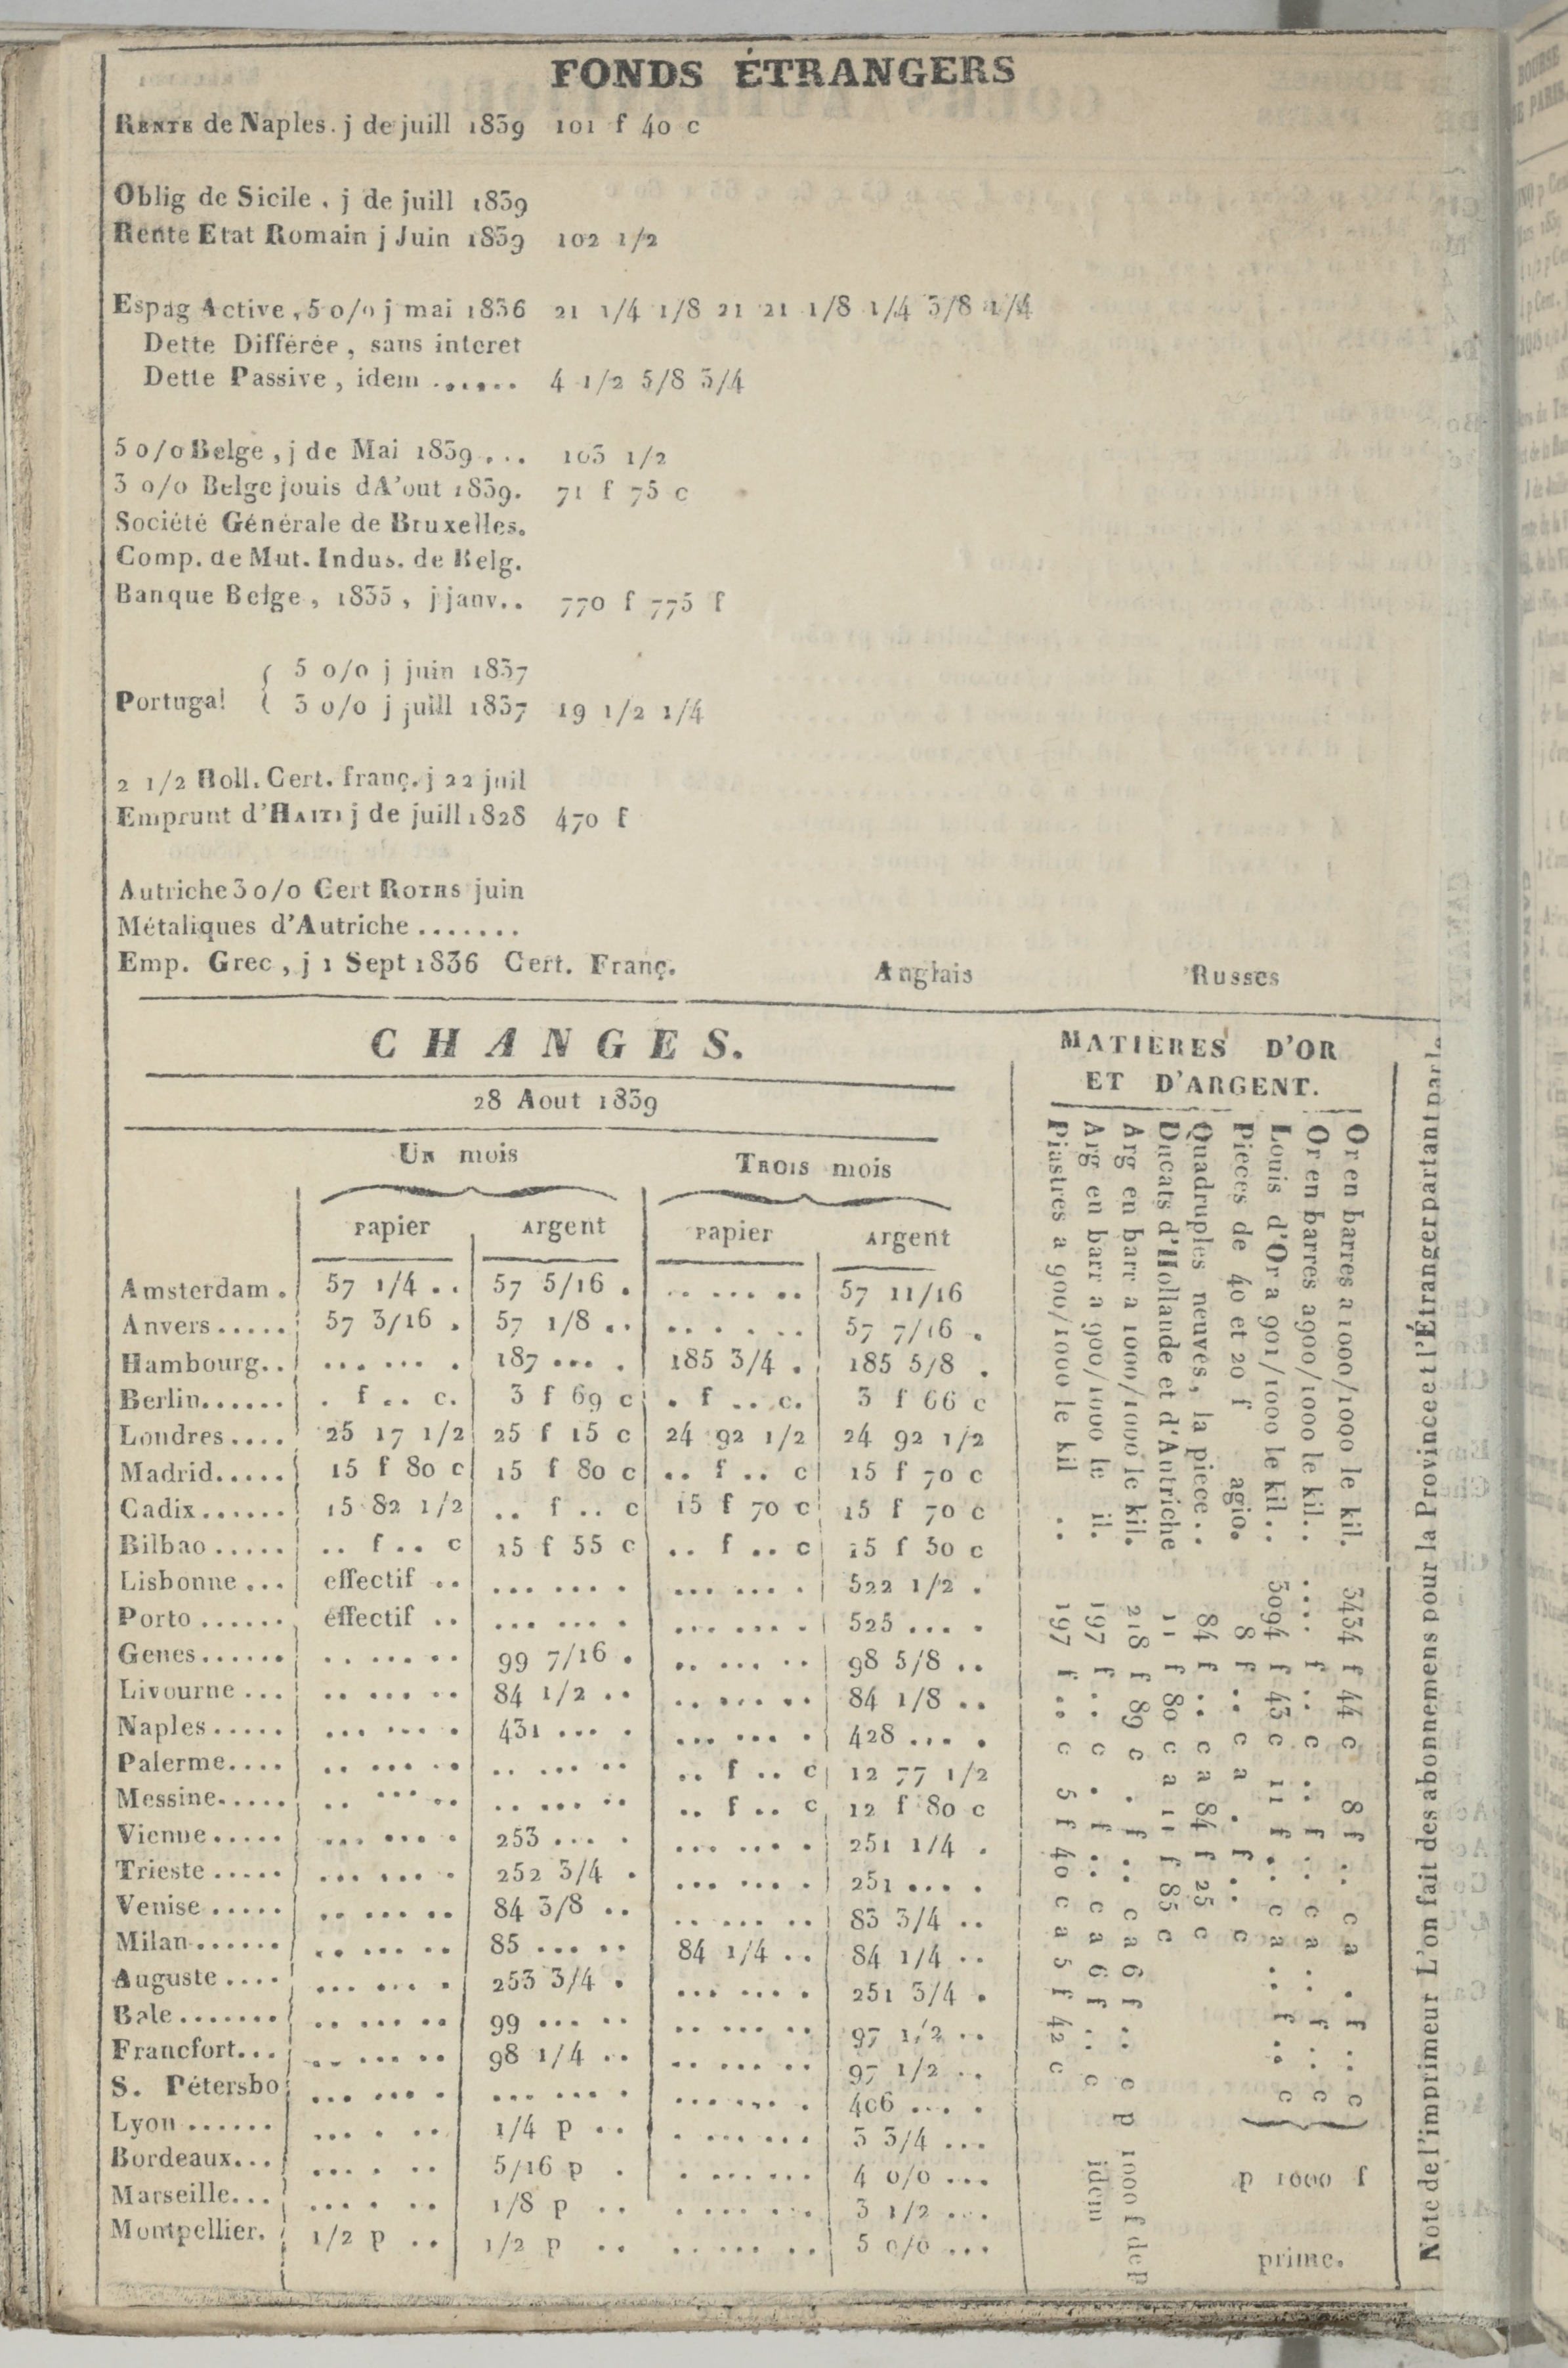 FONDS ÉTRANGERS
RENTE de Naples. j de juill 1839 101 f 40 c
Oblig de Sicile . j de juill 1839
Rente Etat Romain j Juin 1839 102 1/2
Espag Active , 5 o/o j mai 1836 21 1/4 1/8 21 21 1/8 1/4 3/8 1/4
Dette Différée , sans interet
Dette Passive , idem ...... 4 1/2 5/8 3/4
5 o/o Belge , j de Mai 1839 ... 103 1/2
3 o/o Belge jouis dA'out 1839. 71 f 75 c
Société Générale de Bruxelles.
Comp. de Mut. Indus. de Belg.
Banque Belge , 1835 , j janv.. 770 f 775 f
5 o/o j juin 1837
Portugal { 3 o/o j juill 1837 19 1/2 1/4
2 1/2 Holl. Cert. franç. j 22 juil
Emprunt d'HAITI j de juill 1828 470 f
Autriche 3 o/o Cert ROTHS juin
Métaliques d'Autriche .......
Emp. Grec , j 1 Sept 1836 Cert. Franç. Anglais Russes
CHANGES.
28 Aout 1839
UN mois TROIS mois
Papier Argent Papier Argent
Amsterdam . 57 1/4 .. 57 5/16 . .. ... .. 57 11/16
Anvers ..... 57 3/16 . 57 1/8 .. .. . . .. 57 7/16 .
Hambourg.. ... ... . 187 ... . 185 3/4 . 185 5/8 .
Berlin...... . f .. c. 3 f 69 c . f ... c. 3 f 66 c
Londres .... 25 17 1/2 25 f 15 c 24 92 1/2 24 92 1/2
Madrid..... 15 f 80 c 15 f 80 c .. f .. c 15 f 70 c
Cadix ...... 15 82 1/2 .. f .. c 15 f 70 c 15 f 70 c
Bilbao ..... .. f .. c 15 f 55 c .. f .. c 15 f 50 c
Lisbonne ... effectif .. ... ... . ... ... . 522 1/2 .
Porto ...... effectif .. ... ... . ... ... . 525 ... .
Genes...... .. ... .. 99 7/16 . .. ... .. 98 5/8 ..
Livourne ... .. ... .. 84 1/2 .. .. ... .. 84 1/8 ..
Naples ..... ... ... . 431 ... . ... ... . 428 ... .
Palerme.... .. ... .. .. ... .. .. f .. c 12 77 1/2
Messine..... .. ... .. .. ... .. .. f .. c 12 f 80 c
Vienne ..... ... ... . 253 ... . ... ... . 251 1/4 .
Trieste ..... ... ... . 252 3/4 . ... ... . 251 ... .
Venise ..... .. ... .. 84 3/8 .. .. ... .. 83 3/4 ..
Milan ...... .. ... .. 85 ... .. 84 1/4 .. 84 1/4 ..
Auguste .... ... ... . 253 3/4 . ... ... . 251 3/4 .
Bale ....... .. ... .. 99 ... .. .. ... .. 97 1/2 ..
Francfort... .. ... .. 98 1/4 .. .. ... .. 97 1/2 ..
S. Pétersbo ... ... . ... ... . ... ... . 406 ... .
Lyon ...... ... . .. 1/4 p .. . ... ... 3 3/4 ...
Bordeaux... ... . .. 5/16 p . . ... ... 4 o/o ...
Marseille... ... . .. 1/8 p .. . ... ... 3 1/2 ...
Montpellier. 1/2 p .. 1/2 p .. .. ... .. 5 o/o ...
MATIERES D'OR
ET D'ARGENT.
Or en barres a 1000/1000 le kil. 3434 f 44 c 8 f .. c a . f .. c
Or en barres a 900/1000 le kil.. .... f .. c .. f .. c a .. f .. c
Louis d'Or a 901/1000 le kil .. 3094 f 43 c 11 f .. c a .. f .. c
p 1000 f
prime.
Pieces de 40 et 20 f agio. 8 f .. c a . f .. c
Quadruples neuves, la piece .. 84 f .. c a 84 f 25 c
Ducats d'Hollande et d'Autriche 11 f 80 c a 11 f 85 c
Arg en barr a 1000/1000 le kil. 218 f 89 c . f .. c a 6 f .. c p 1000 f de p
Arg en barr a 900/1000 le il. 197 f .. c . f .. c a 6 f .. c idem
Piastres a 900/1000 le kil .. 197 f .. c 5 f 40 c a 5 f 42 c
Note de l'imprimeur L'on fait des abonnemens pour la Province et l'Étranger partant par le
BOURSE
DE PARIS